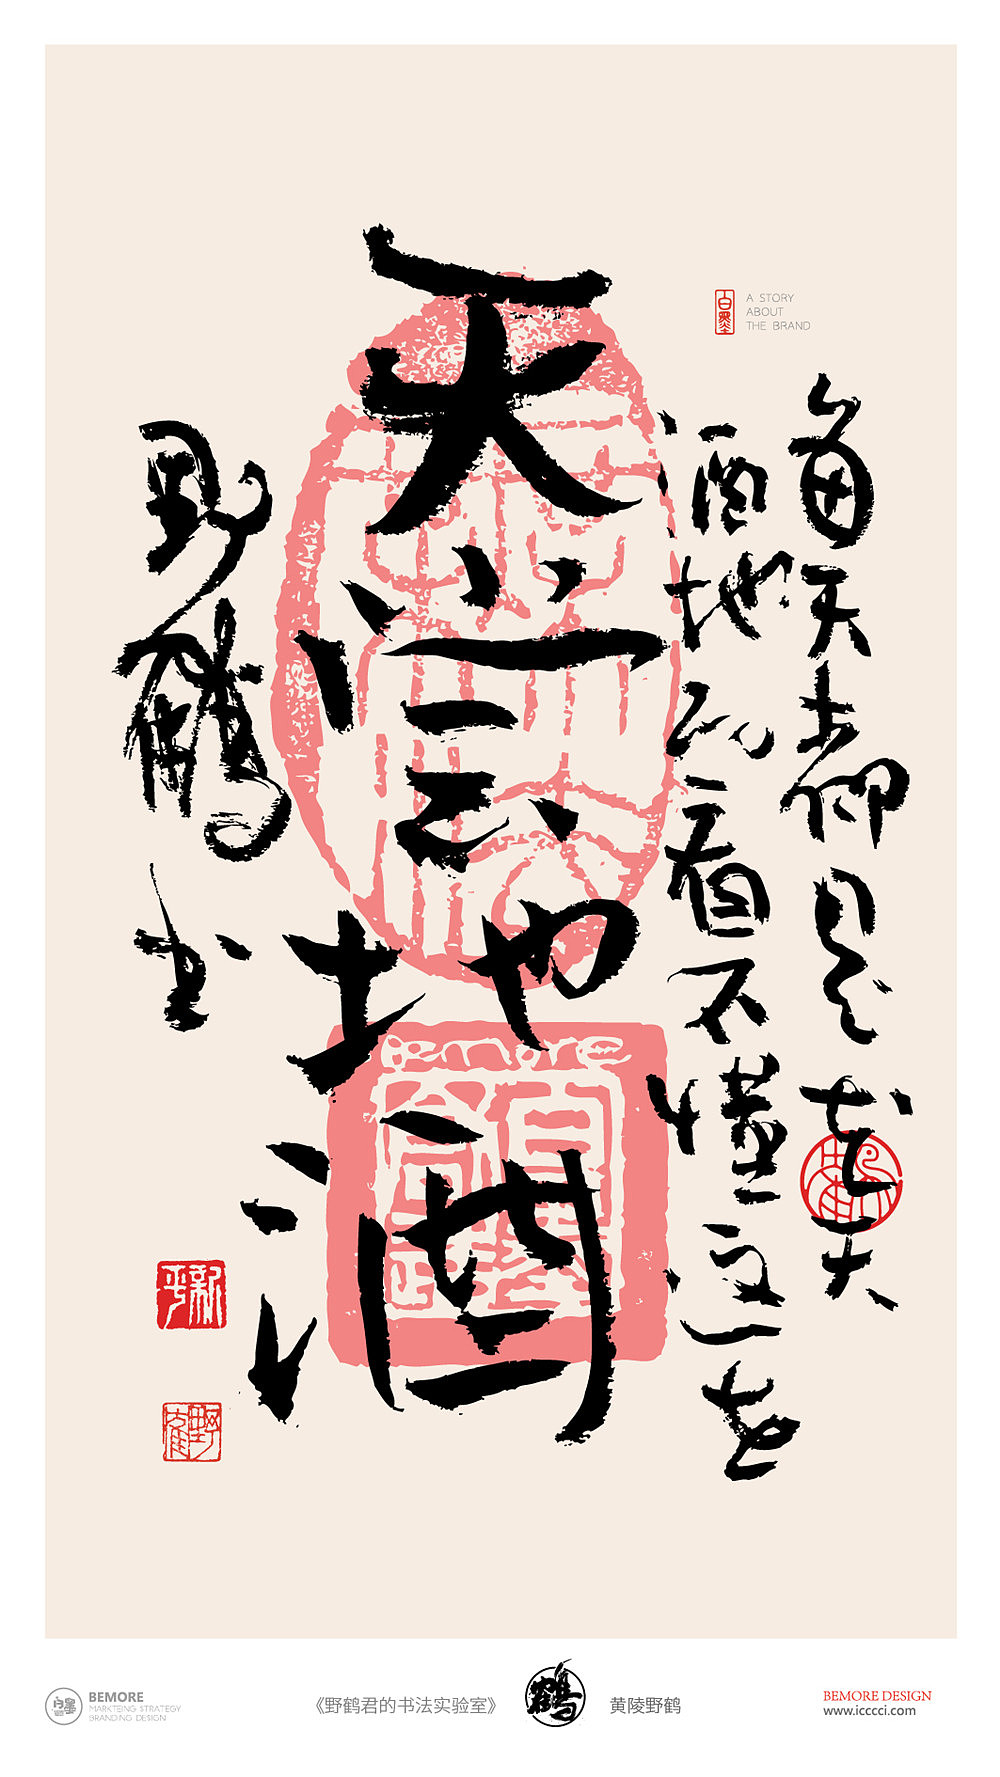 A STORY
ABOUT
THE BRAND
白墨
每天都仰是花天
酒地 看不懂这
天尝地酒
野鹤书
bemore
BEMORE
MARKTEING STRATEGY
BRANDING DESIGN
《野鹤君的书法实验室》
鹤
黄陵野鹤
BEMORE DESIGN
www.icccci.com